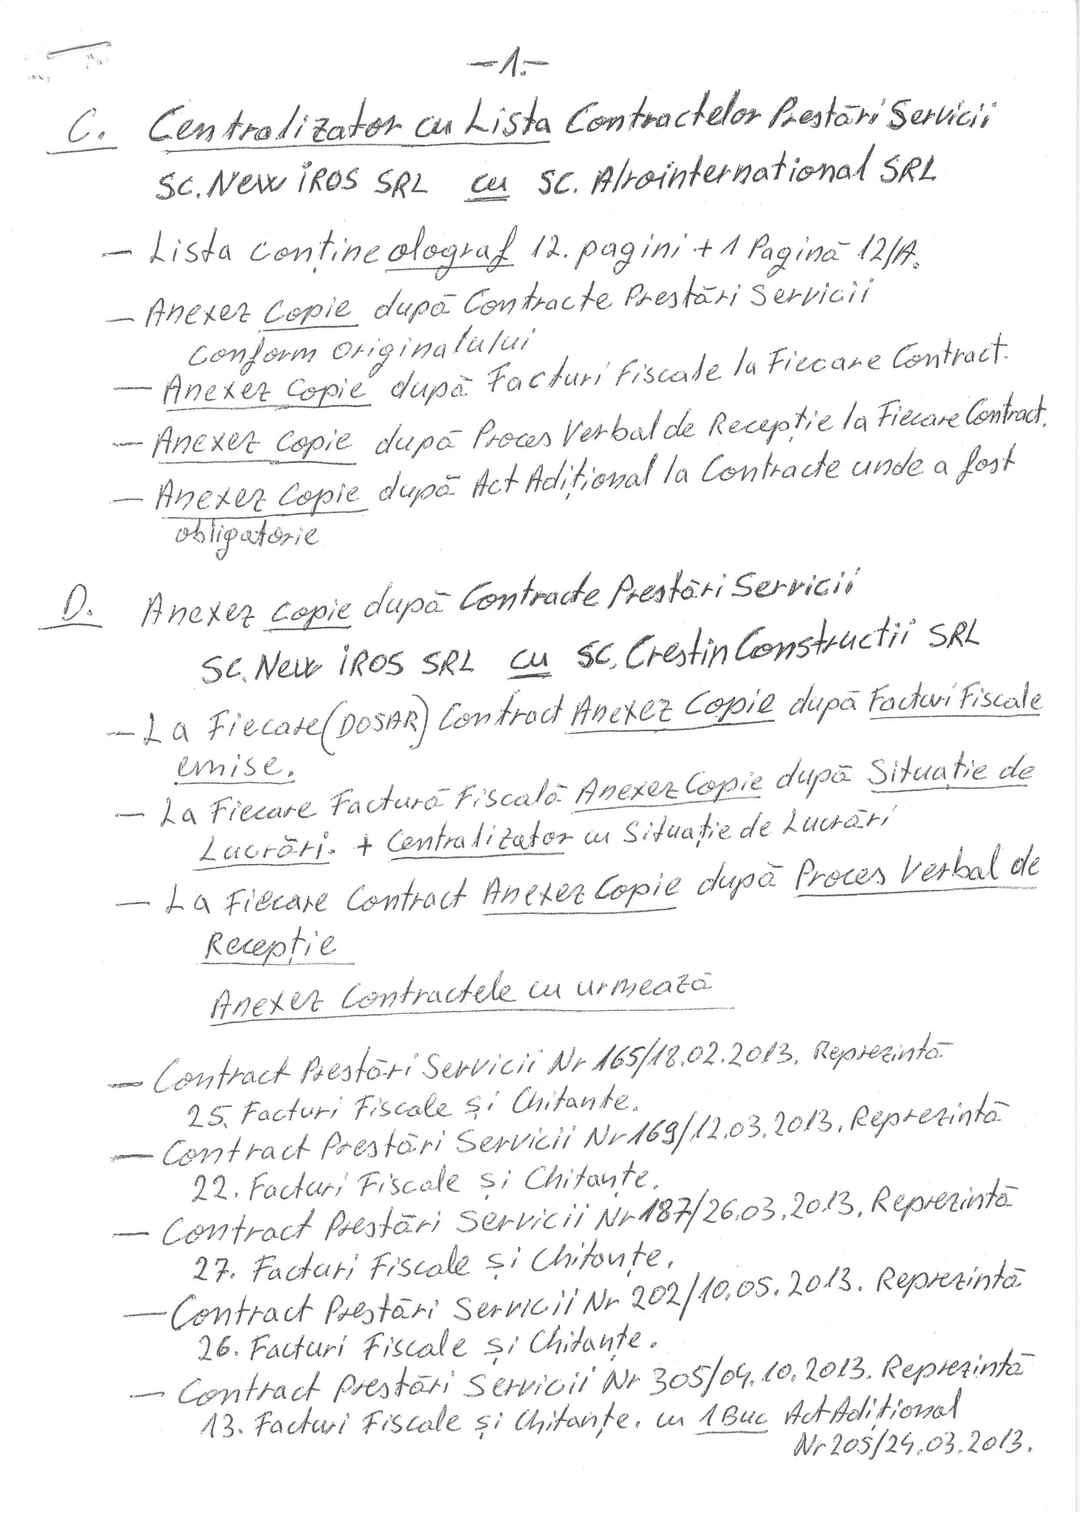 -1.-
C. Centralizator cu Lista Contractelor Prestări Servicii
SC. New iROS SRL cu SC. Alrointernational SRL
- Lista conține olograf 12. pagini + 1 Pagină 12/A.
- Anexez Copie după Contracte Prestări Servicii
Conform originalului
- Anexez Copie după Facturi Fiscale la Fiecare Contract.
- Anexez Copie după Proces Verbal de Recepție la Fiecare Contract.
- Anexez Copie după Act Adițional la Contracte unde a fost
obligatorie
D. Anexez copie după Contracte Prestări Servicii
SC. New iROS SRL cu SC. Crestin Constructii SRL
- La Fiecare (DOSAR) Contract Anexez Copie după Facturi Fiscale
emise.
- La Fiecare Factură Fiscală Anexez Copie după Situatie de
Lucrări. + Centralizator cu Situație de Lucrări
- La Fiecare Contract Anexez Copie după Proces Verbal de
Recepție
Anexez Contractele cu urmează
- Contract Prestări Servicii Nr 165/18.02.2013. Reprezintă
25. Facturi Fiscale și Chitante.
- Contract Prestări Servicii Nr 169/12.03.2013. Reprezintă
22. Facturi Fiscale și Chitanțe.
- Contract Prestări Servicii Nr 187/26.03.2013. Reprezintă
27. Facturi Fiscale și Chitanțe.
- Contract Prestări Servicii Nr 202/10.05.2013. Reprezintă
26. Facturi Fiscale și Chitanțe.
- Contract Prestări Servicii Nr 305/04.10.2013. Reprezintă
13. Facturi Fiscale și Chitanțe. cu 1 Buc Act Adițional
Nr 205/24.03.2013.